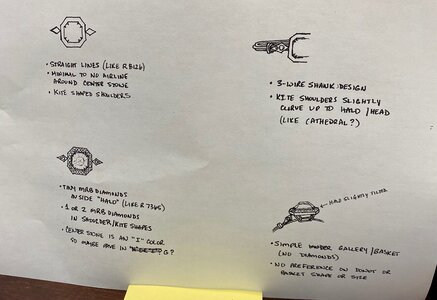 • STRAIGHT LINES (LIKE R8126)
• MINIMAL TO NO AIRLINE
AROUND CENTER STONE
• KITE SHAPED SHOULDERS
• 3-WIRE SHANK DESIGN
• KITE SHOULDERS SLIGHTLY
CURVE UP TO HALO/HEAD
(LIKE CATHEDRAL?)
• TINY MRB DIAMONDS
INSIDE "HALO" (LIKE R7365)
• 1 OR 2 MRB DIAMONDS
IN SHOULDER/KITE SHAPES
• CENTER STONE IS AN "I" COLOR
SO MAYBE HAVE IN G?
HALO SLIGHTLY TILTED
• SIMPLE GALLERY/BASKET
(NO DIAMONDS)
• NO PREFERENCE ON DONUT OR
BASKET SHAPE OR SIZE